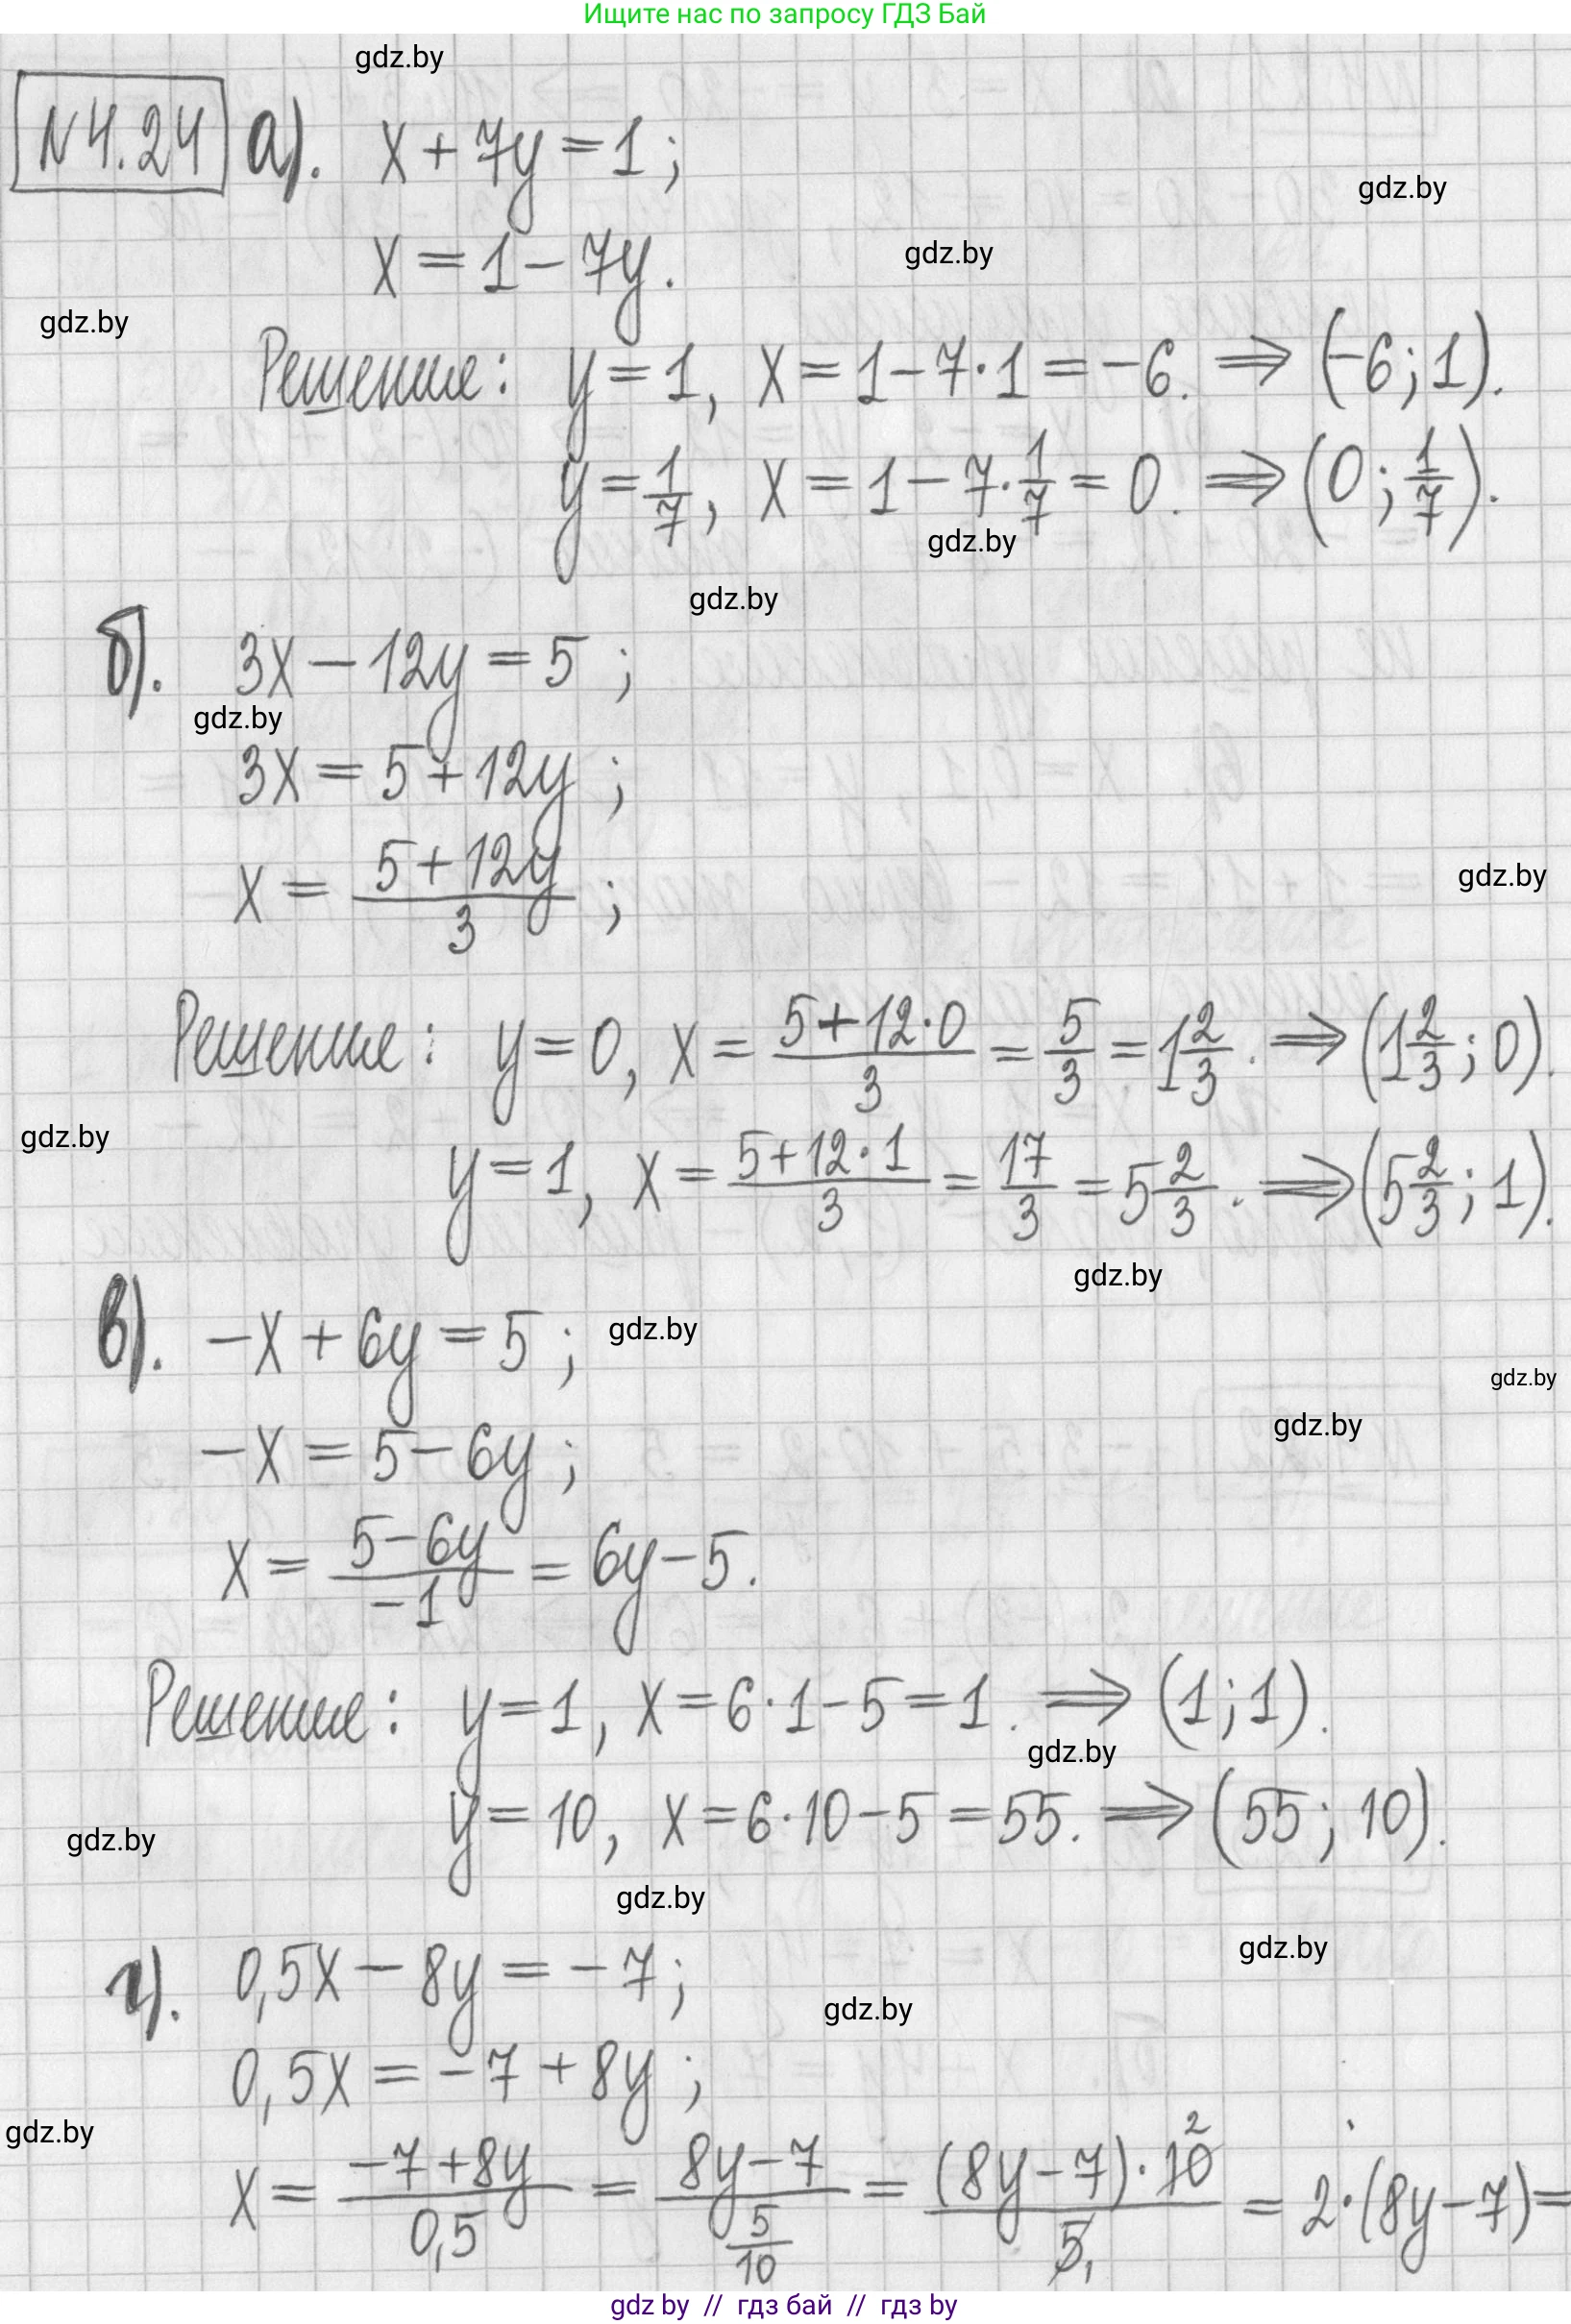 Ищите нас по запросу ГДЗ Бай
gdz.by
№4.24 а). x + 7y = 1;
gdz.by
x = 1 - 7y.
gdz.by
gdz.by
Решение: y = 1, x = 1 - 7·1 = -6. ⇒ (-6; 1).
y = 1/7, x = 1 - 7·1/7 = 0. ⇒ (0; 1/7).
gdz.by
gdz.by
б). 3x - 12y = 5;
gdz.by
3x = 5 + 12y;
x = (5 + 12y)/3;
gdz.by
Решение: y = 0, x = (5 + 12·0)/3 = 5/3 = 1 2/3. ⇒ (1 2/3; 0).
gdz.by
y = 1, x = (5 + 12·1)/3 = 17/3 = 5 2/3. ⇒ (5 2/3; 1).
gdz.by
в). -x + 6y = 5;
gdz.by
gdz.by
gdz.by
-x = 5 - 6y;
x = (5 - 6y)/(-1) = 6y - 5.
Решение: y = 1, x = 6·1 - 5 = 1. ⇒ (1; 1).
gdz.by
y = 10, x = 6·10 - 5 = 55. ⇒ (55; 10).
gdz.by
gdz.by
gdz.by
г). 0,5x - 8y = -7;
gdz.by
0,5x = -7 + 8y;
gdz.by
x = (-7 + 8y)/0,5 = (8y - 7)/(5/10) = ((8y - 7)·10 2)/5 1 = 2·(8y - 7) =
gdz by // гдз бай // гдз by